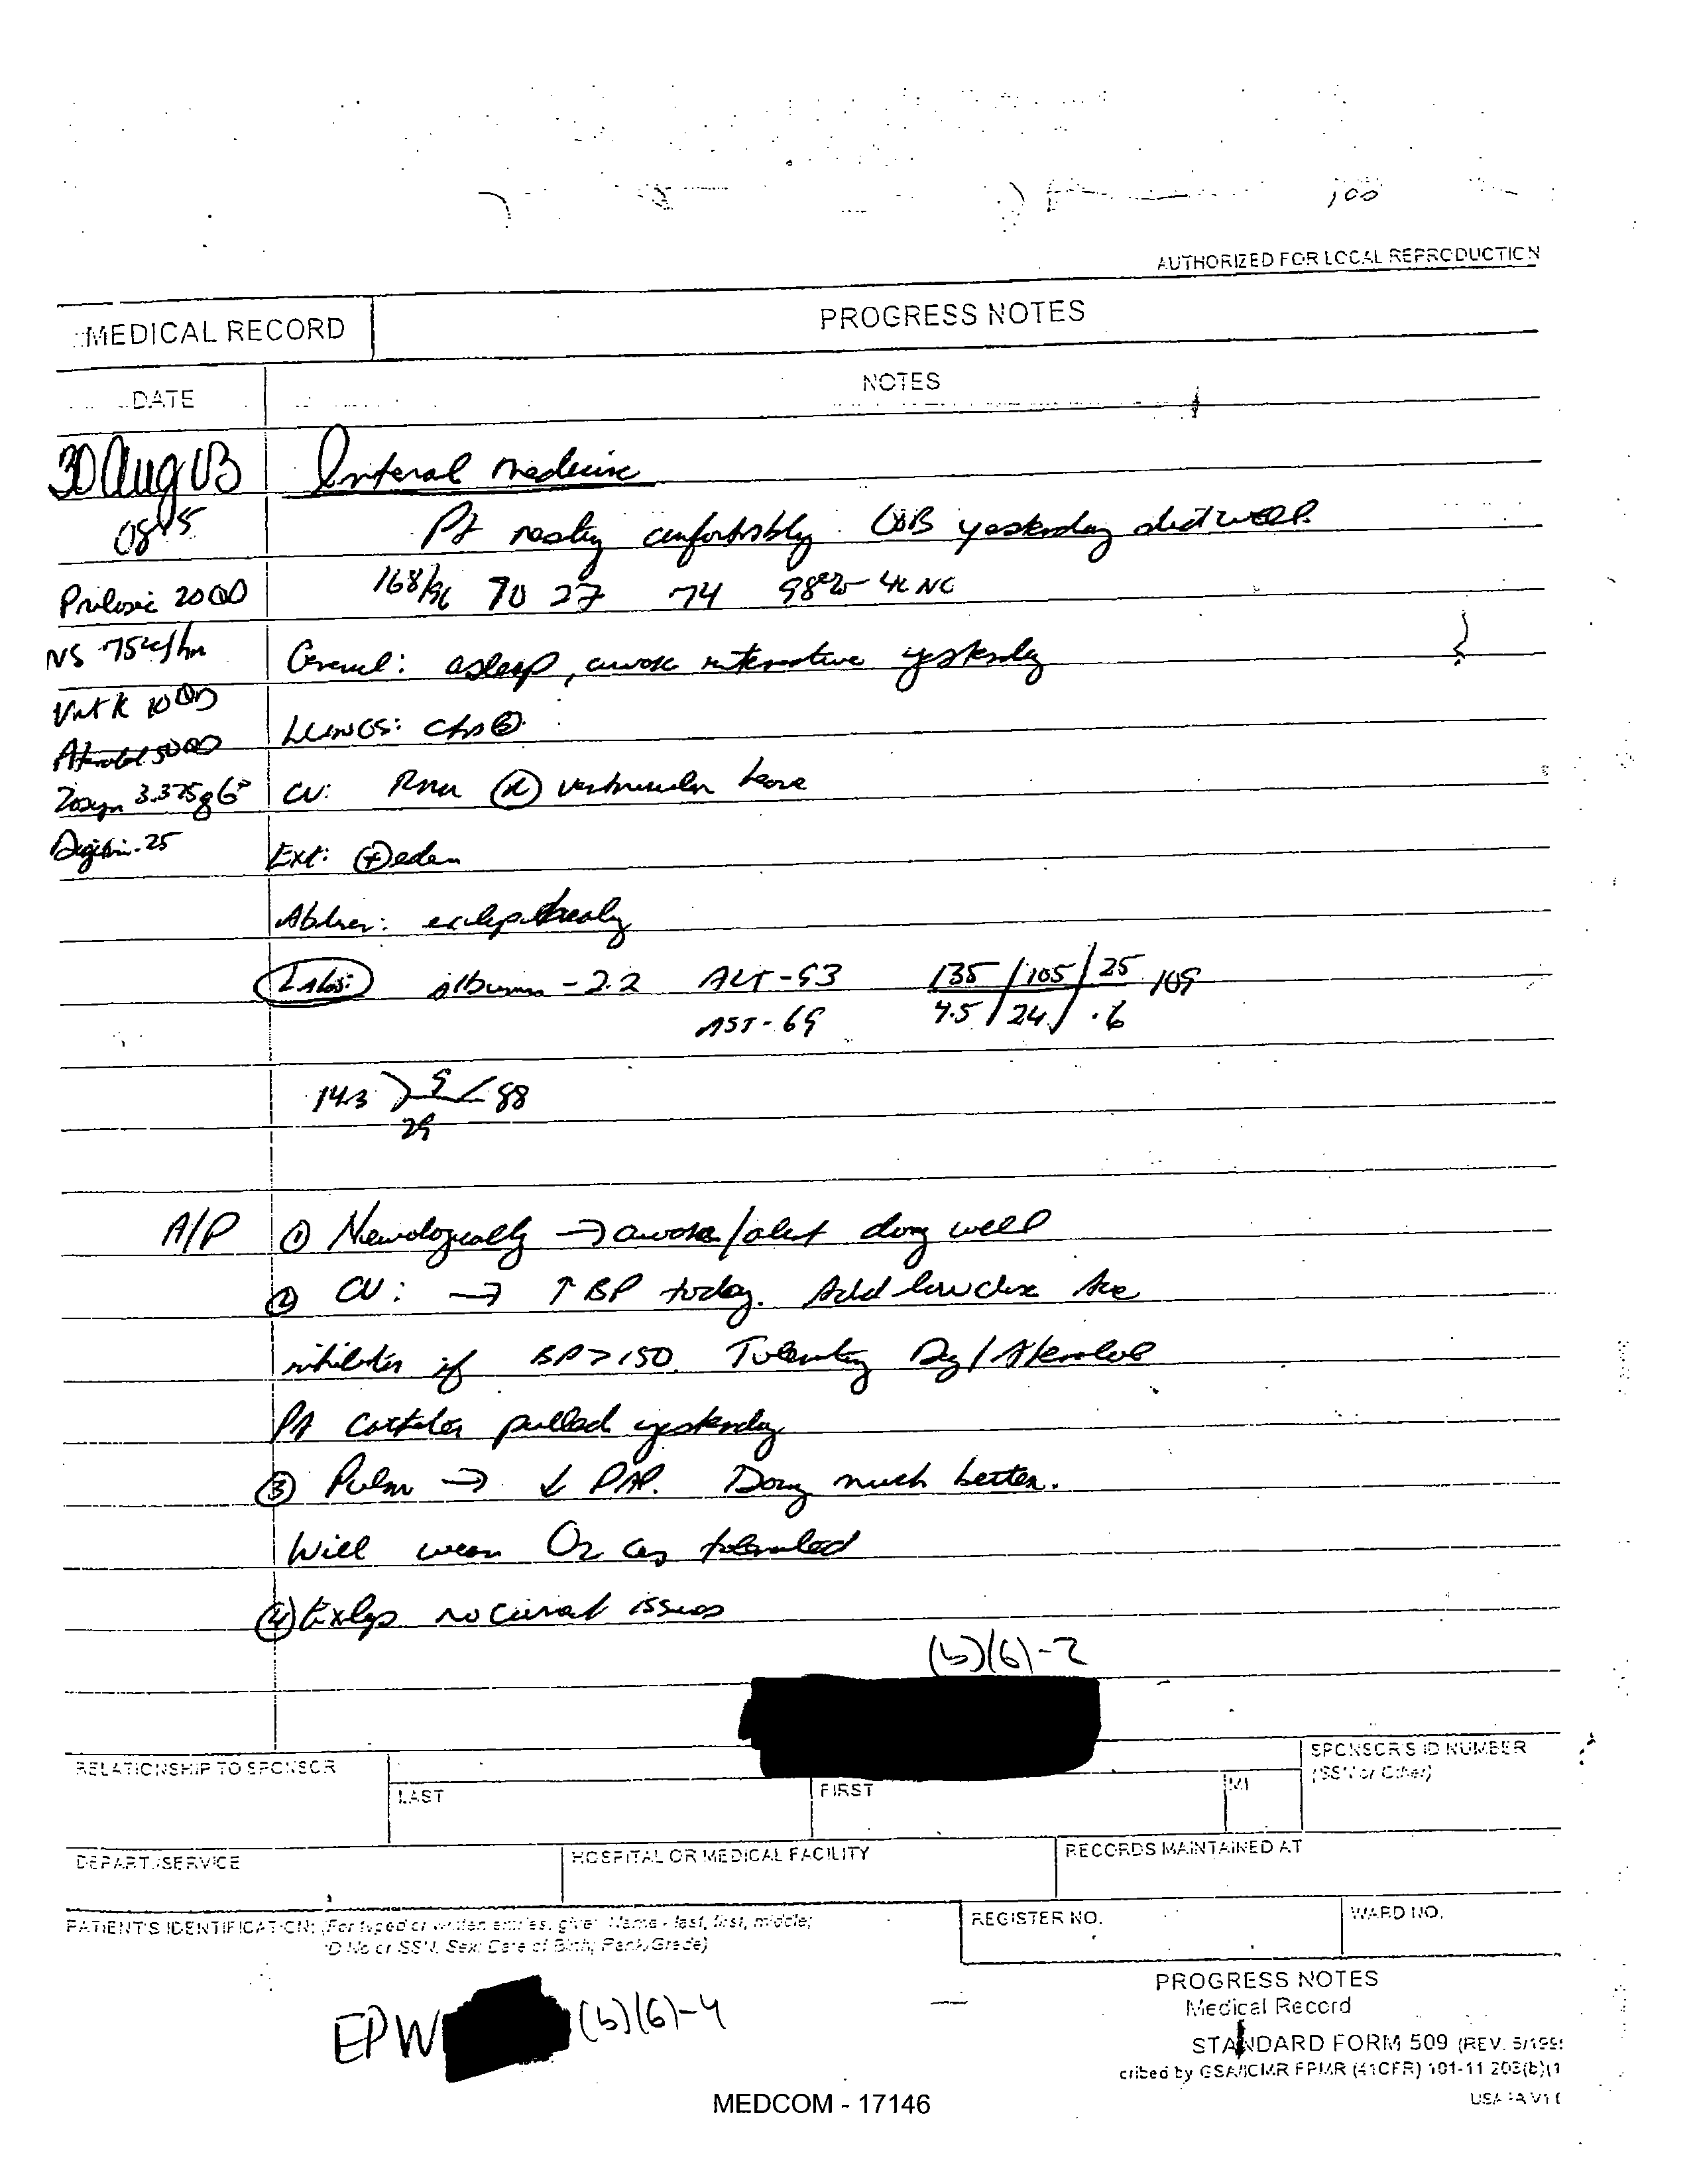 AUTHORIZED FOR LOCAL REPRODUCTION
MEDICAL RECORD
PROGRESS NOTES
DATE
NOTES
30 Aug 03
Internal medicine
0845
Pt resting comfortably. OOB yesterday did well.
Prilosec 20 QD
168/96 70 27 74 98% 4L NC
NS 75cc/hr
General: asleep, awake interactive yesterday
Vit K 10 QD
LUNGS: CTA
Atenolol 50 QD
Zosyn 3.375g 6°
CV: RRR ventricular heave
Digoxin .25
Ext: ⊕ edema
Abdmen:
Labs: albumin - 2.2 ALT - 93 135 / 105 / 25 109
AST - 69 4.5 / 24 / .6
14.3 > 9 < 88
29
A/P ① Neurologically → awake/alert doing well
② CV: → ↑ BP today. Add low dose Ace
inhibitor if BP > 150. Tolerating Dig/Atenolol
PA Catheter pulled yesterday
③ Pulm → ↓ PAP. Doing much better.
Will wean O2 as tolerated
④ Exlap no current issues
(b)(6)-2
RELATIONSHIP TO SPONSOR
LAST
FIRST
MI
SPONSOR'S ID NUMBER
(SSN or Other)
DEPART./SERVICE
HOSPITAL OR MEDICAL FACILITY
RECORDS MAINTAINED AT
PATIENT'S IDENTIFICATION: (For typed or written entries, give: Name - last, first, middle;
ID No or SSN; Sex; Date of Birth; Rank/Grade)
REGISTER NO.
WARD NO.
EPW (b)(6)-4
PROGRESS NOTES
Medical Record
STANDARD FORM 509 (REV. 5/199
cribed by GSA/ICMR FPMR (41CFR) 101-11 203(b)(1
MEDCOM - 17146